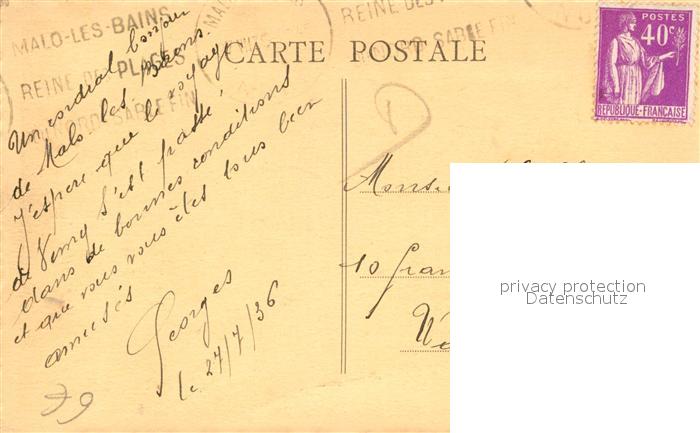 MALO-LES-BAINS
REINE DES PLAGES
SABLE FIN
REINE DES
SABLE FIN
CARTE POSTALE
POSTES
40c
REPUBLIQUE-FRANÇAISE
Un cordial bonjour
de Malo les Bains.
J'espère que le voyage
de Vimy s'est passé
dans de bonnes conditions
et que vous vous êtes tous bien
amusés
Georges
le 27/7/36
79
D
10
privacy protection
Datenschutz